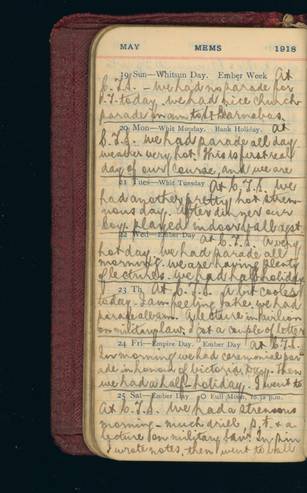 MAY MEMS 1918
19 Sun—Whitsun Day. Ember Week At
C.T.S. - We had no parade for
P.T. today. We had nice church
parade to St Barnabas.
20 Mon—Whit Monday. Bank Holiday. at
C.T.S. We had parade all day
weather very hot. This is first real
day of our course, and we are
21 Tues—Whit Tuesday At C.T.S. We
had another pretty hot stren-
uous day. After dinner our
boy played indoor ball agst
22 Wed—Ember Day At C.T.S. a very
hot day. We had parade all
morning. We are having plenty
of lectures. We had half holiday
23 Th. At C.T.S. a bit cooler
today. I am feeling fake. We had
parade all am. Lecture in Pavilion
on military law. I got a couple of letters
24 Fri—Empire Day. Ember Day At C.T.S.
In morning we had ceremonial par-
ade in honour of Victoria Day. Then
we had a half-holiday. I went to
25 Sat—Ember Day. O Full Moon, 10.32 p.m.
At C.T.S. We had a strenuous
morning - much drill, P.T. & a
lecture on military law. In p.m.
I wrote notes, then I went to ball